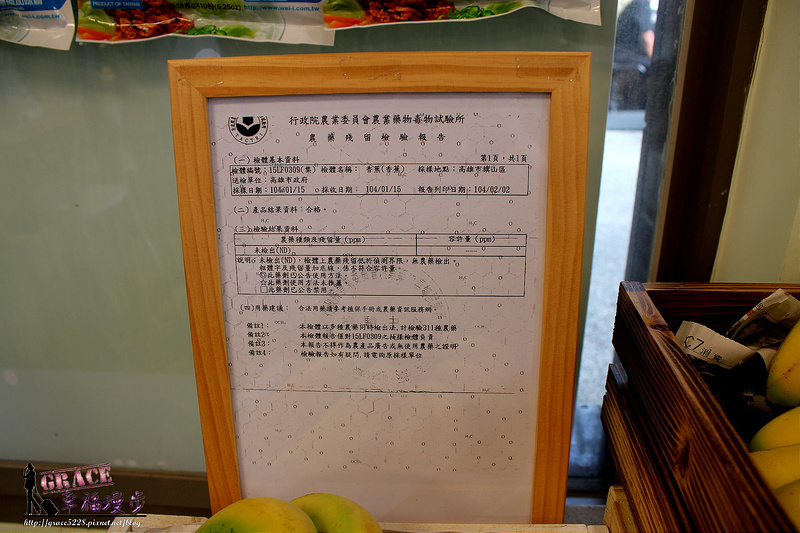 PRODUCT OF TAIWAN
http://www.wei-i.com.tw
行政院農業委員會農業藥物毒物試驗所
農藥殘留檢驗報告
(一)檢體基本資料
第1頁，共1頁
檢體編號：15LF0309(集) 檢體名稱： 香蕉(香蕉) 採樣地點：高雄市旗山區
送檢單位：高雄市政府
採樣日期：104/01/15 採收日期： 104/01/15 報告列印日期：104/02/02
(二)產品結果資料：合格。
(三)檢驗結果資料
農藥種類及殘留量 (ppm) 容許量 (ppm)
未檢出(ND)
說明：未檢出(ND)，檢體上農藥殘留低於偵測界限，無農藥檢出。
粗體字及殘留量加底線，係不符合容許量。
◎此藥劑已公告使用方法。
☆此藥劑使用方法未推薦。
□此藥劑已公告禁用。
(四)用藥建議： 合法用藥請參考植保手冊或農藥資訊服務網。
備註1： 本檢體以多種農藥同時檢出法，計檢驗311種農藥
備註2： 本檢驗報告僅對15LF0309之採樣檢體負責
備註3： 本報告不得作為農產品廣告或無使用農藥之證明
備註4： 檢驗報告如有疑問，請電詢原採樣單位
GRACE
幸福漫步
http://grace5228.pixnet.net/blog